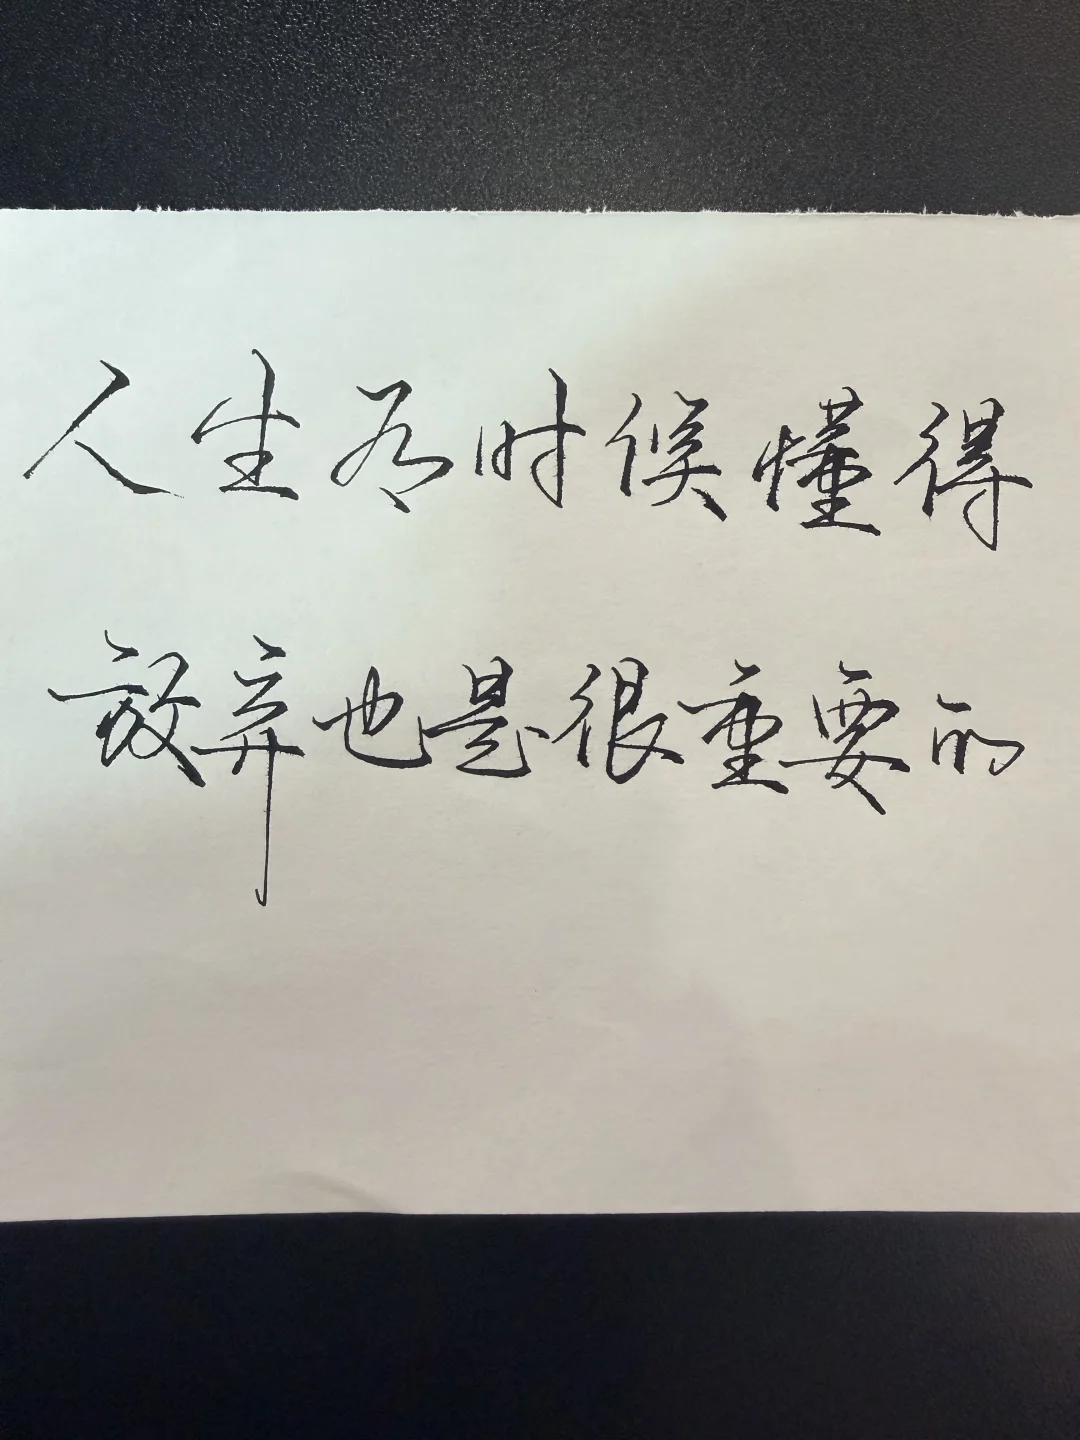 人生有时候懂得
放弃也是很重要的